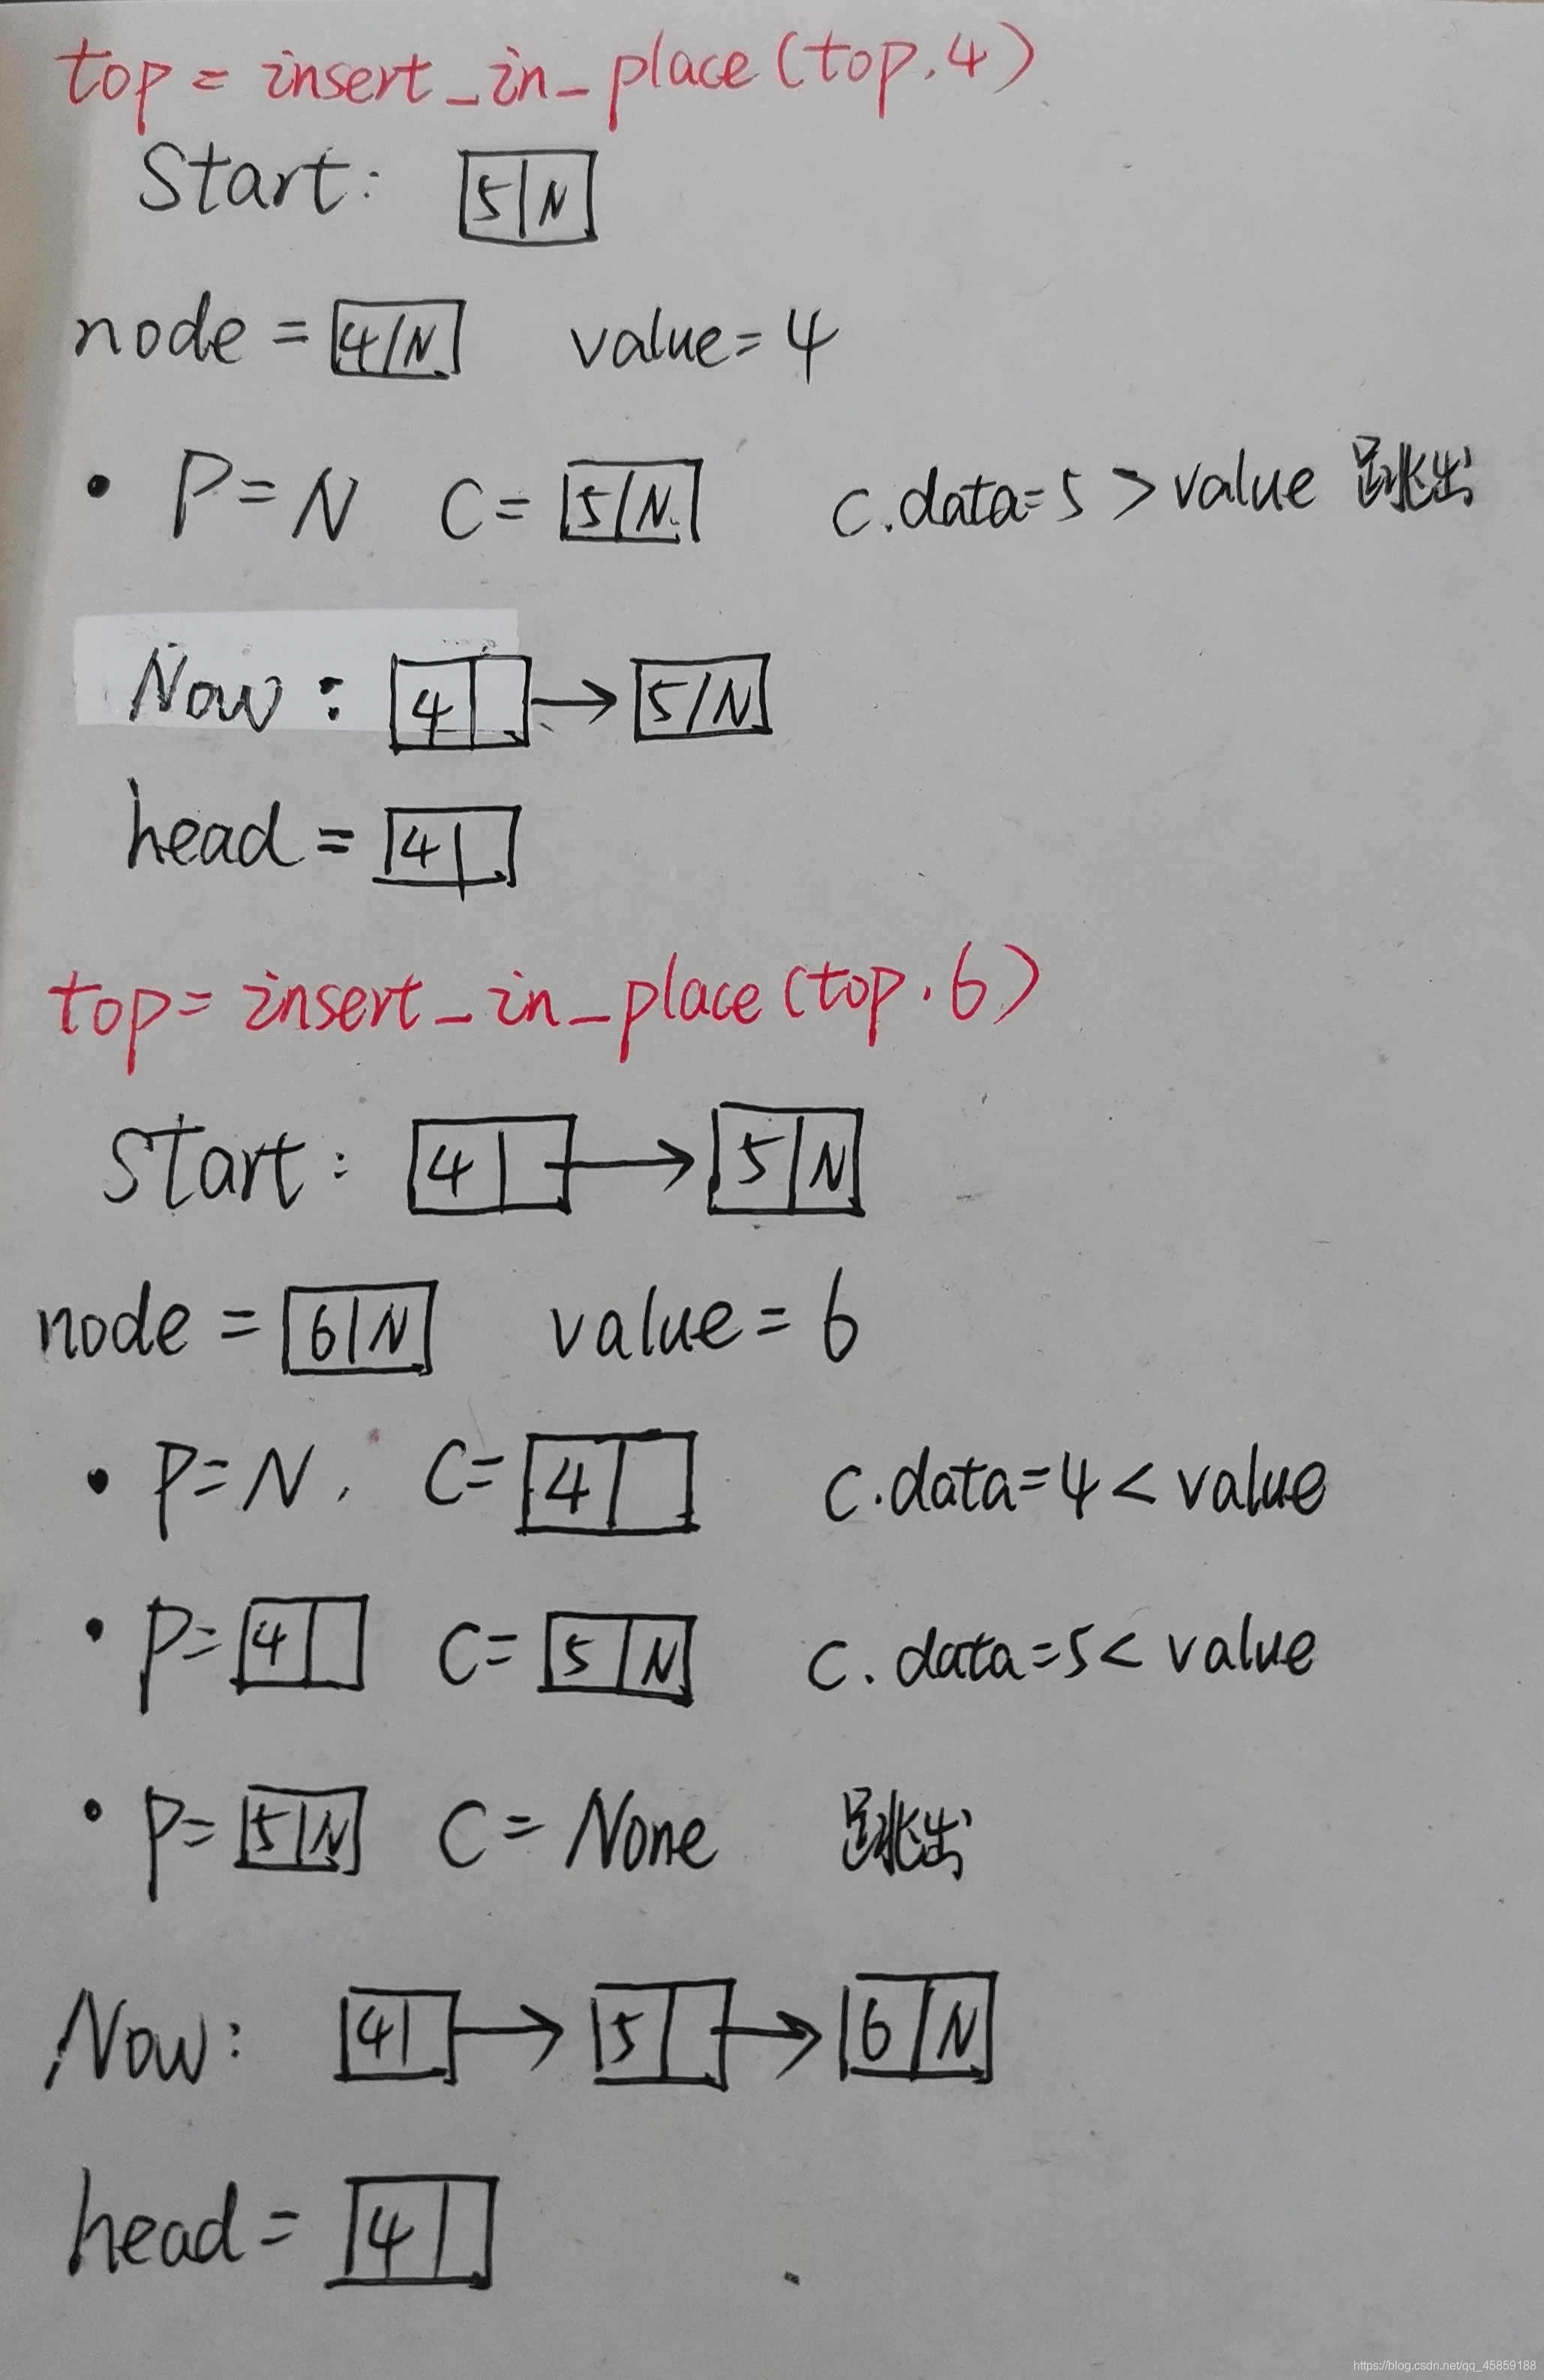 top = insert_in_place(top.4)
Start: 5 N
node = 4 N value = 4
• P = N C = 5 N c.data = 5 > value 跳出
Now: 4 → 5 N
head = 4
top = insert_in_place(top.6)
Start: 4 → 5 N
node = 6 N value = 6
• P = N. C = 4 c.data = 4 < value
• P = 4 C = 5 N c.data = 5 < value
• P = 5 N C = None 跳出
Now: 4 → 5 → 6 N
head = 4
https://blog.csdn.net/qq_45859188